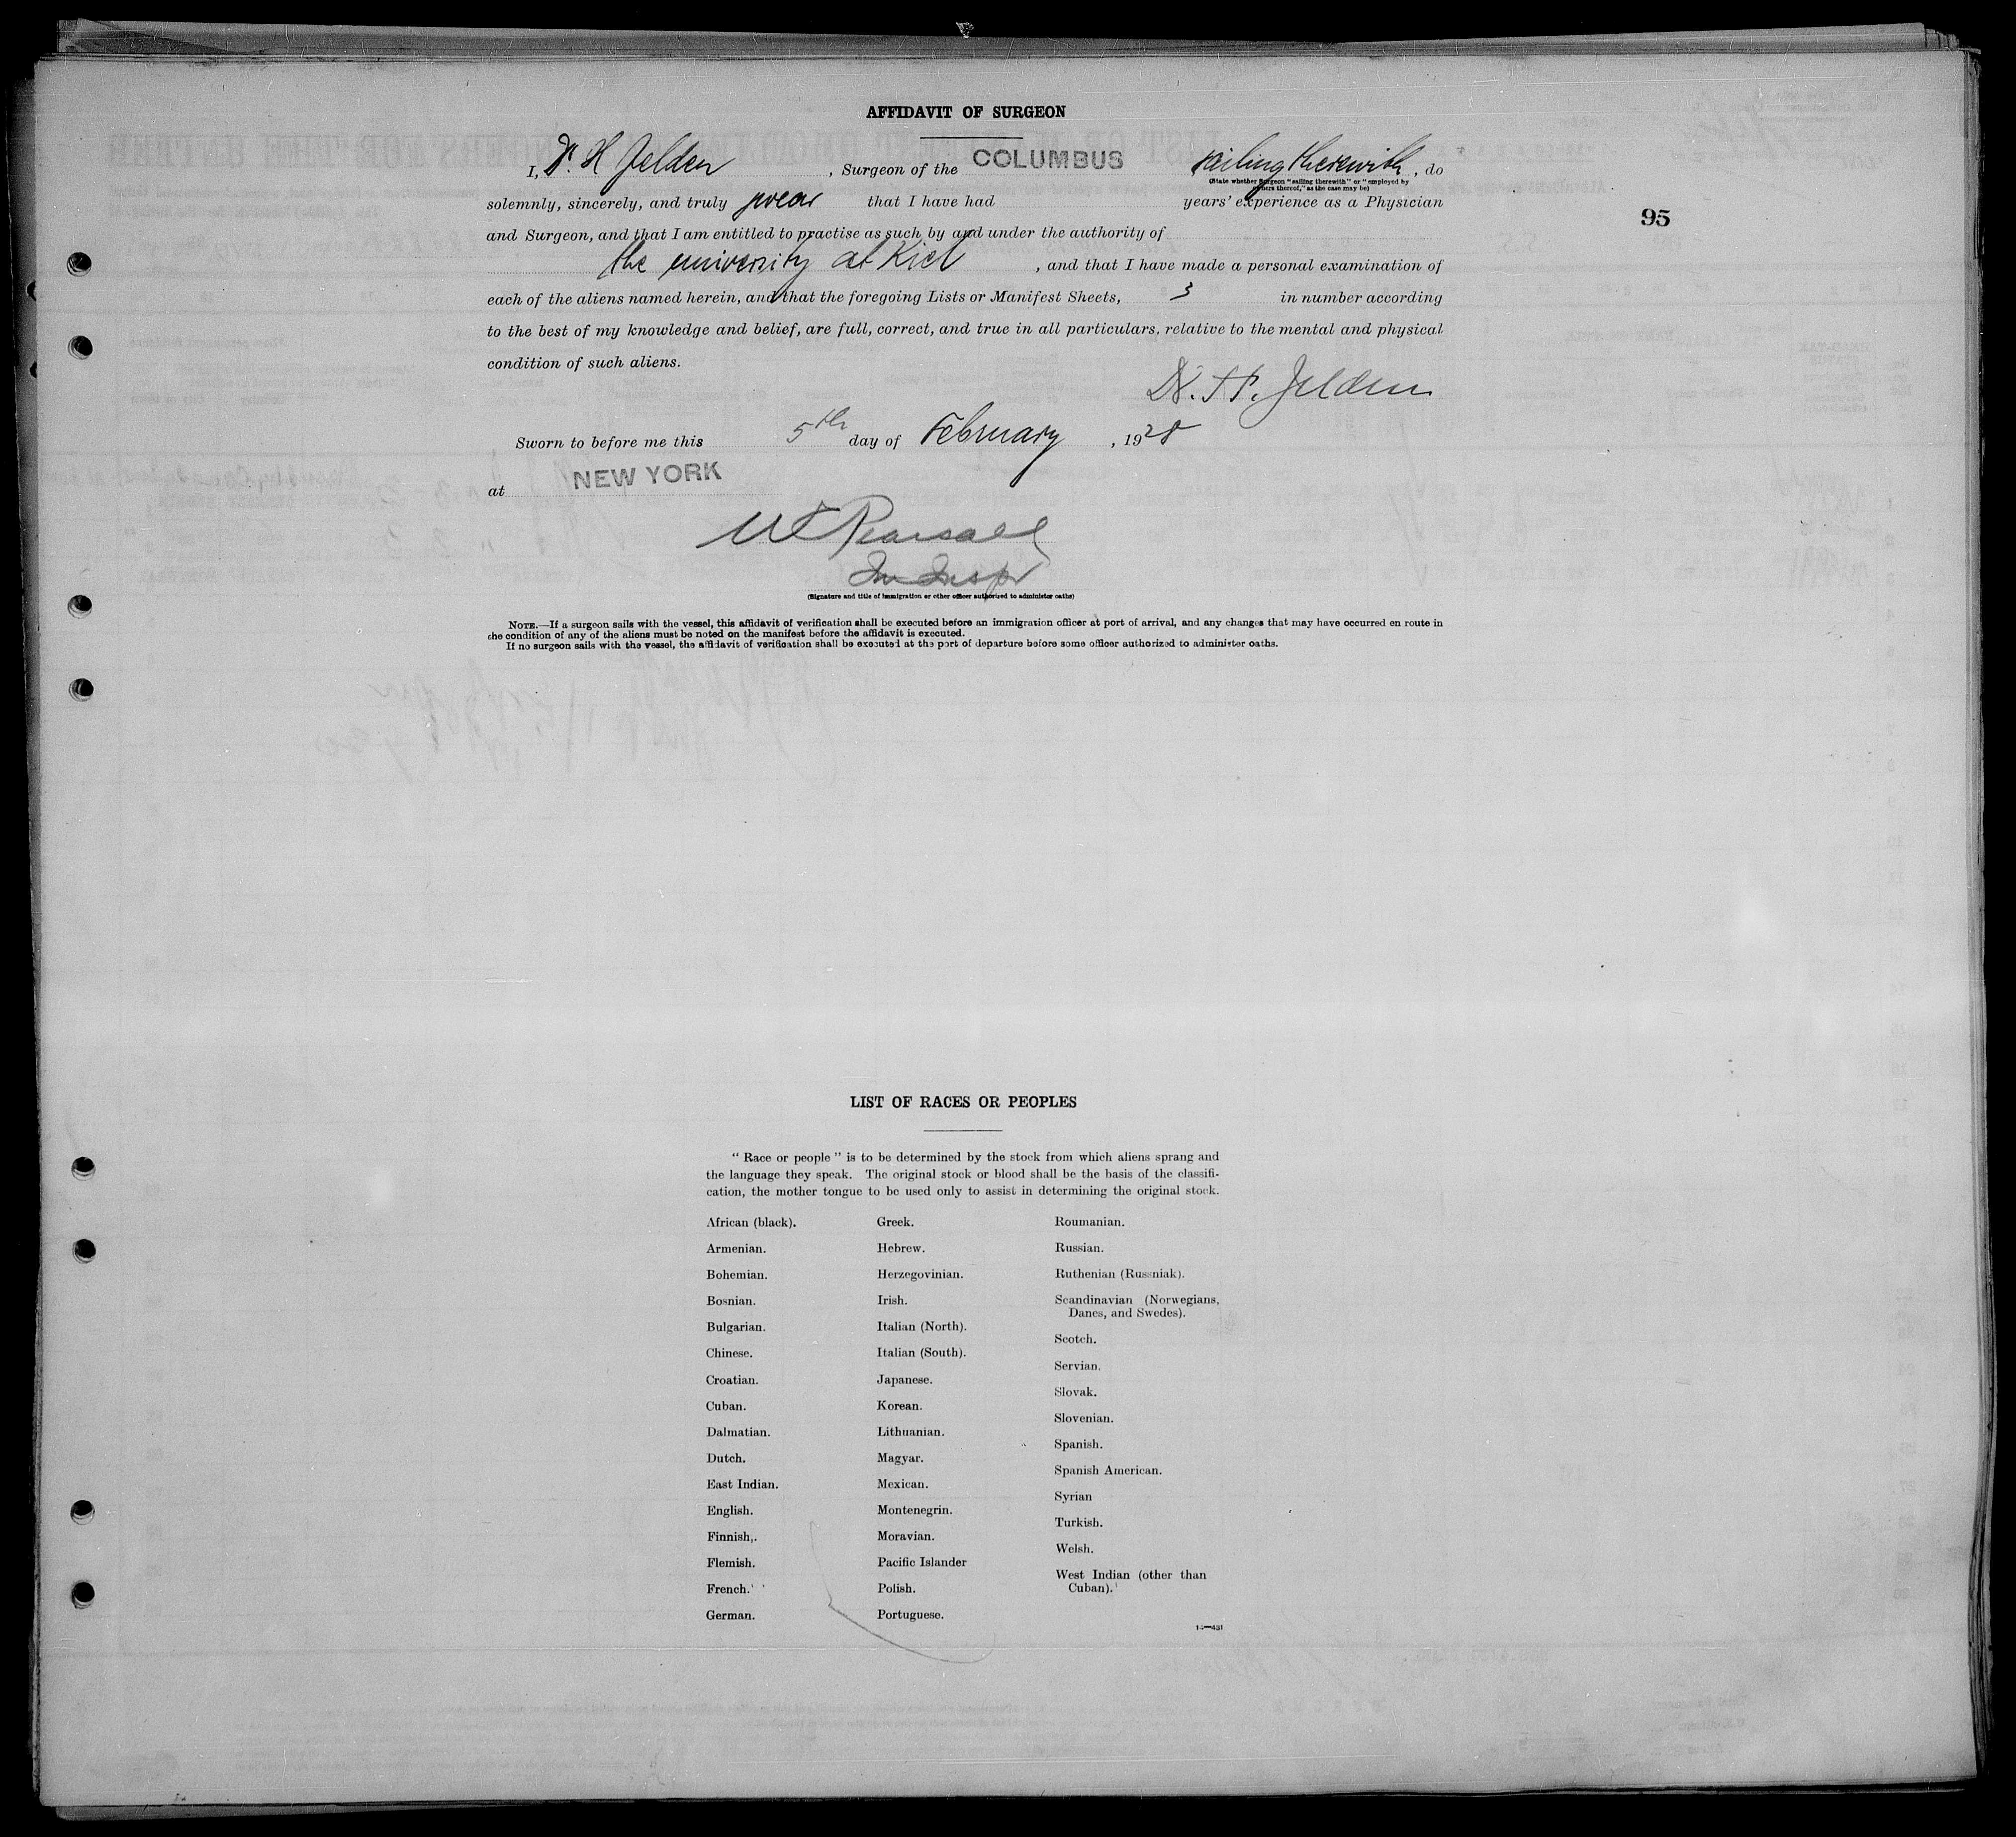 AFFIDAVIT OF SURGEON
I, Dr. H Jelden, Surgeon of the COLUMBUS sailing therewith, do
(State whether Surgeon "sailing therewith" or "employed by
owners thereof," as the case may be)
solemnly, sincerely, and truly swear that I have had years' experience as a Physician
95
and Surgeon, and that I am entitled to practise as such by and under the authority of
the university at Kiel, and that I have made a personal examination of
each of the aliens named herein, and that the foregoing Lists or Manifest Sheets, 3 in number according
to the best of my knowledge and belief, are full, correct, and true in all particulars, relative to the mental and physical
condition of such aliens.
Dr. H. Jelden
Sworn to before me this 5th day of February, 1928
at NEW YORK
Pearsall
Im Inspr
(Signature and title of immigration or other officer authorized to administer oaths)
NOTE.—If a surgeon sails with the vessel, this affidavit of verification shall be executed before an immigration officer at port of arrival, and any changes that may have occurred en route in
the condition of any of the aliens must be noted on the manifest before the affidavit is executed.
If no surgeon sails with the vessel, the affidavit of verification shall be executed at the port of departure before some officer authorized to administer oaths.
LIST OF RACES OR PEOPLES
"Race or people" is to be determined by the stock from which aliens sprang and
the language they speak. The original stock or blood shall be the basis of the classifi-
cation, the mother tongue to be used only to assist in determining the original stock.
African (black).
Armenian.
Bohemian.
Bosnian.
Bulgarian.
Chinese.
Croatian.
Cuban.
Dalmatian.
Dutch.
East Indian.
English.
Finnish.
Flemish.
French.
German.
Greek.
Hebrew.
Herzegovinian.
Irish.
Italian (North).
Italian (South).
Japanese.
Korean.
Lithuanian.
Magyar.
Mexican.
Montenegrin.
Moravian.
Pacific Islander
Polish.
Portuguese.
Roumanian.
Russian.
Ruthenian (Russniak).
Scandinavian (Norwegians,
Danes, and Swedes).
Scotch.
Servian.
Slovak.
Slovenian.
Spanish.
Spanish American.
Syrian
Turkish.
Welsh.
West Indian (other than
Cuban).
14—431